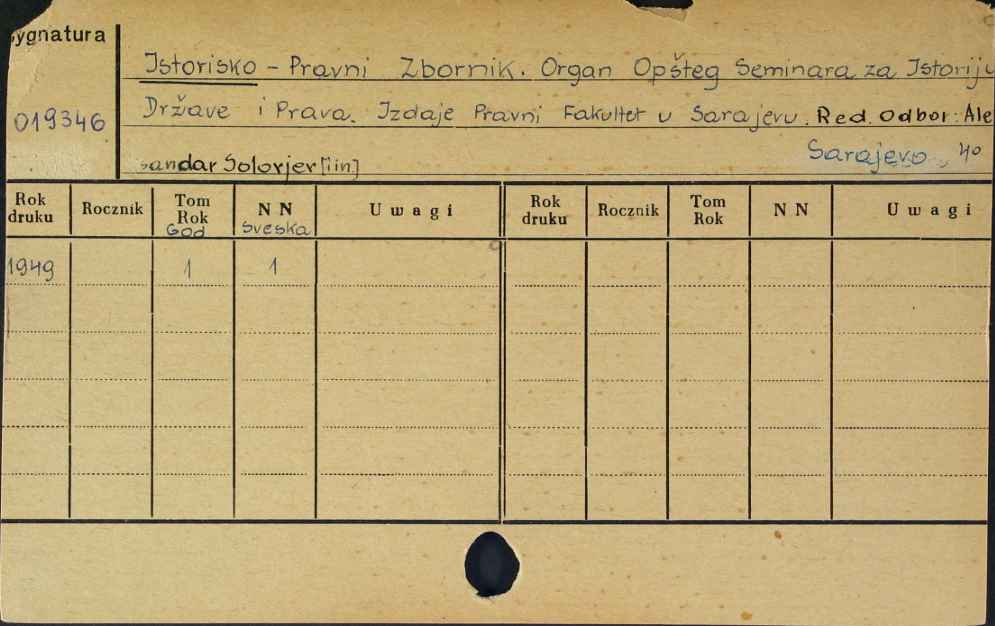 ygnatura
Istorisko – Pravni Zbornik. Organ Opšteg Seminara za Istoriju
019346
Države i Prava. Izdaje Pravni Fakultet u Sarajevu. Red. Odbor: Ale
sandar Solovjev [i in]
Sarajevo, 4o
Rok druku Rocznik Tom Rok NN Uwagi Rok druku Rocznik Tom Rok NN Uwagi
God Sveska
1949 1 1